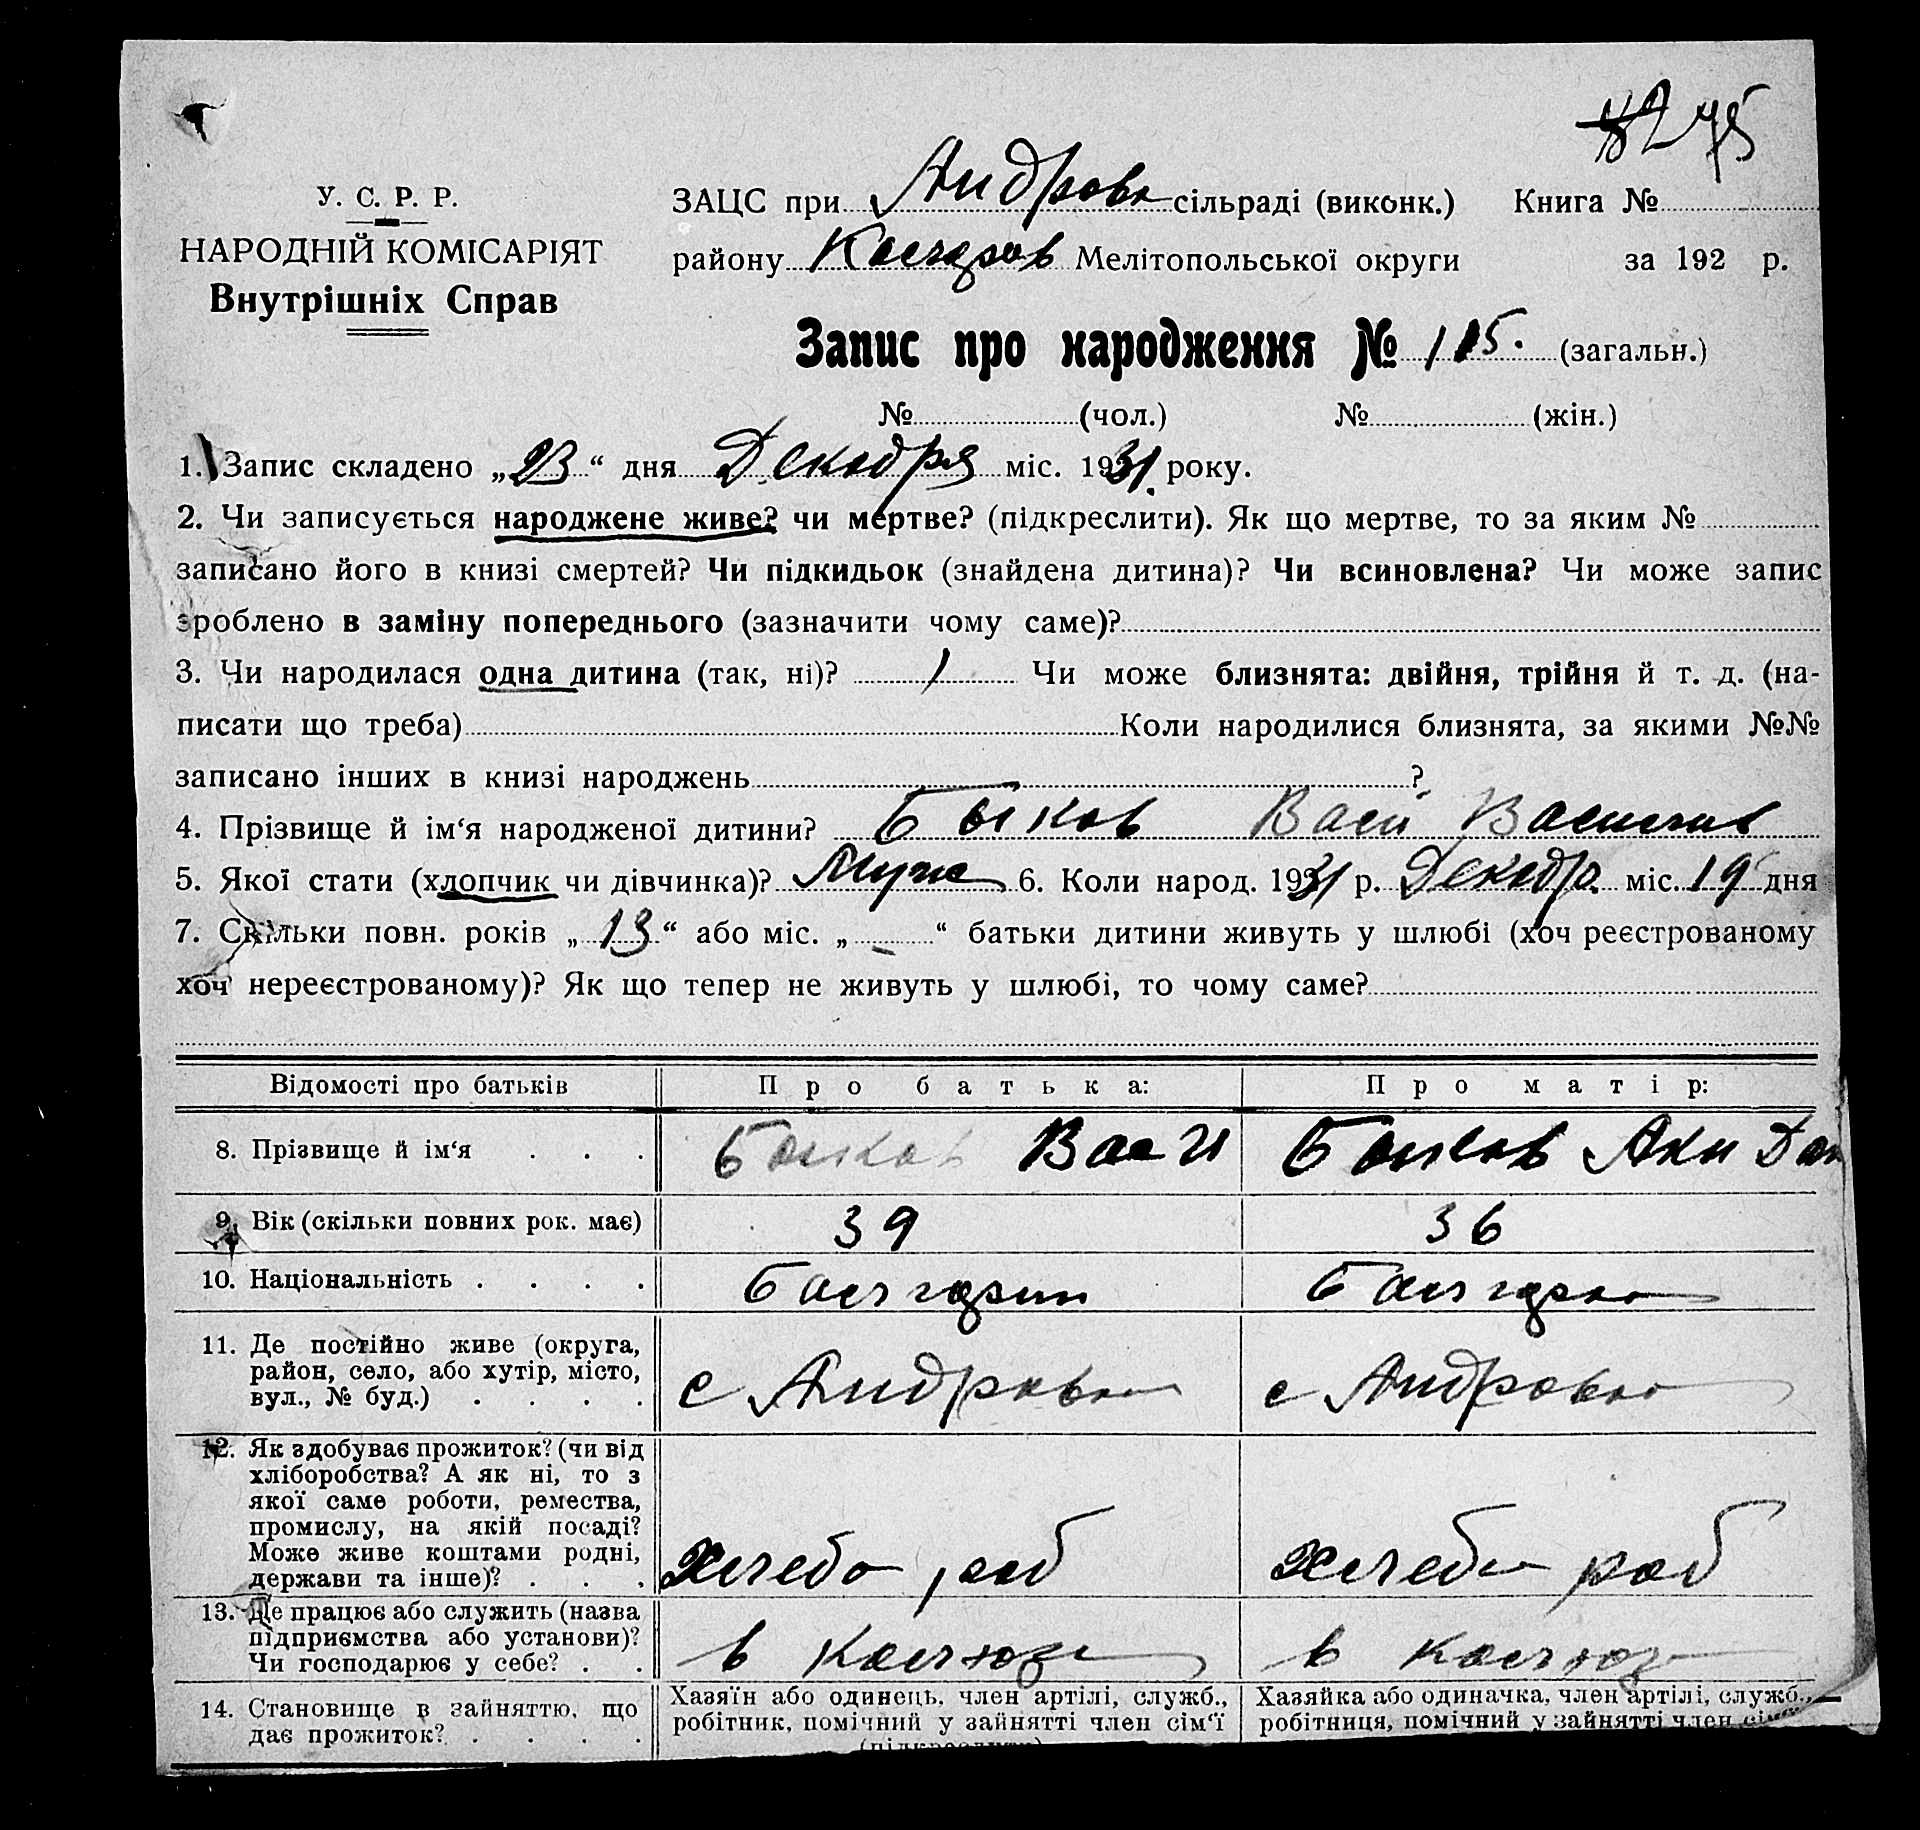 У. С. Р. Р.
НАРОДНІЙ КОМІСАРІЯТ
Внутрішніх Справ
75
ЗАЦС при Андровк сільраді (виконк.) Книга №
району Мелітопольської округи за 192 р.
Запис про народження № 115. (загальн.)
№ (чол.) № (жін.)
1. Запис складено „23“ дня Декабря міс. 1931 року.
2. Чи записується народжене живе? чи мертве? (підкреслити). Як що мертве, то за яким №
записано його в книзі смертей? Чи підкидьок (знайдена дитина)? Чи всиновлена? Чи може запис
зроблено в заміну попереднього (зазначити чому саме)?
3. Чи народилася одна дитина (так, ні)? 1 Чи може близнята: двійня, трійня й т. д. (на-
писати що треба) Коли народилися близнята, за якими №№
записано інших в книзі народжень ?
4. Прізвище й ім‘я народженої дитини? Быков Васи Василив
5. Якої стати (хлопчик чи дівчинка)? Муж 6. Коли народ. 1931 р. Декабр. міс. 19 дня
7. Скільки повн. років „13“ або міс. „ – “ батьки дитини живуть у шлюбі (хоч реєстрованому
хоч нереєстрованому)? Як що тепер не живуть у шлюбі, то чому саме?
Відомості про батьків Про батька: Про матір:
8. Прізвище й ім‘я . . . Быков Васи Быков Аки Дан
9. Вік (скільки повних рок. має) 39 36
10. Національність . . . . Болгарин Болгарк
11. Де постійно живе (округа,
район, село, або хутір, місто,
вул., № буд.) . . . . с Андровк с Андровк
12. Як здобуває прожиток? (чи від
хліборобства? А як ні, то з
якої саме роботи, ремества,
промислу, на якій посаді?
Може живе коштами родні,
держави та інше)? . . . хлебороб хлебороб
13. Де працює або служить (назва
підприємства або установи)?
Чи господарює у себе? . . в колхозе в колхоз
14. Становище в зайняттю, що
дає прожиток? . . . .
Хазяїн або одинець, член артілі, служб.,
робітник, помічний у зайнятті член сім‘ї
(підкреслити)
Хазяйка або одиначка, член артілі, служб.,
робітниця, помічний у зайнятті член сім‘ї